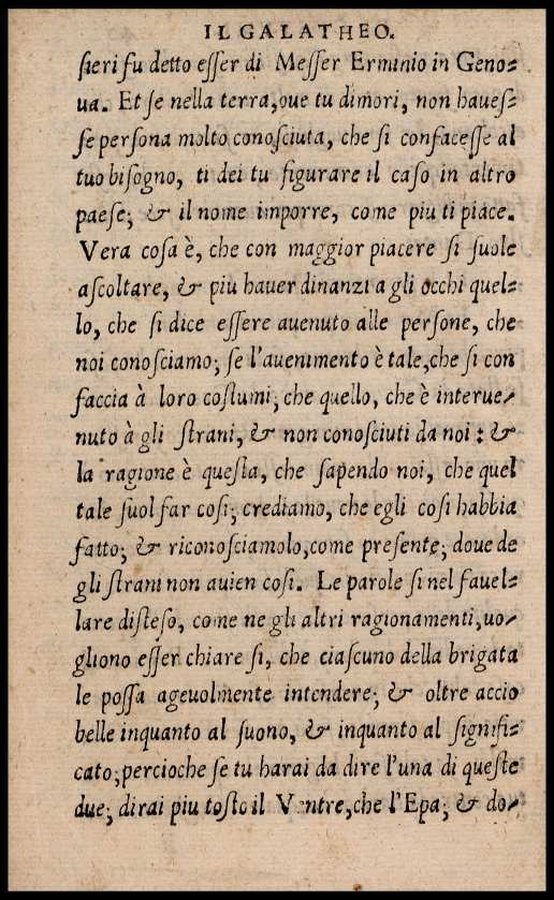 IL GALATHEO.
sieri fu detto esser di Messer Erminio in Geno-
ua. Et se nella terra, oue tu dimori, non haues-
se persona molto conosciuta, che si confacesse al
tuo bisogno, ti dei tu figurare il caso in altro
paese; & il nome imporre, come piu ti piace.
Vera cosa è, che con maggior piacere si suole
ascoltare, & piu hauer dinanzi a gli occhi quel-
lo, che si dice essere auenuto alle persone, che
noi conosciamo; se l'auenimento è tale, che si con
faccia à loro costumi; che quello, che è interue-
nuto à gli strani, & non conosciuti da noi: &
la ragione è questa, che sapendo noi, che quel
tale suol far cosi; crediamo, che egli cosi habbia
fatto; & riconosciamolo, come presente; doue de
gli strani non auien cosi. Le parole si nel fauel-
lare disteso, come ne gli altri ragionamenti, uo-
gliono esser chiare si, che ciascuno della brigata
le possa ageuolmente intendere; & oltre accio
belle inquanto al suono, & inquanto al signifi-
cato; percioche se tu harai da dire l'una di queste
due; dirai piu tosto il Ventre, che l'Epa; & do-